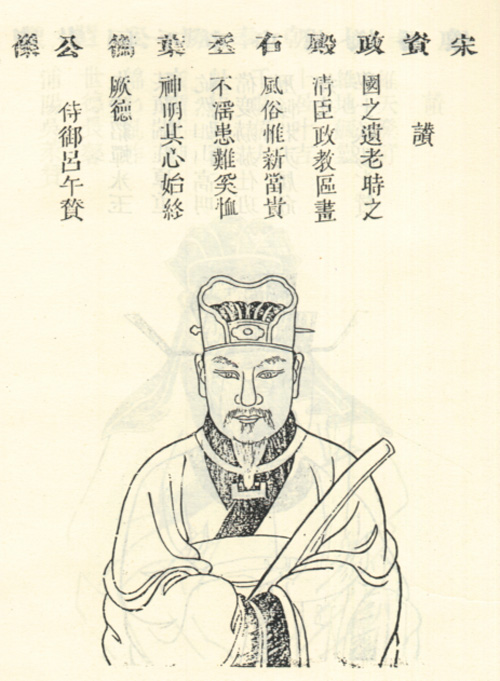 宋資政殿右丞葉公像
讚
國之遺老時之
清臣政教區畫
風俗惟新富貴
不淫患難奚恤
神明其心始終
厥德
侍御呂午贊